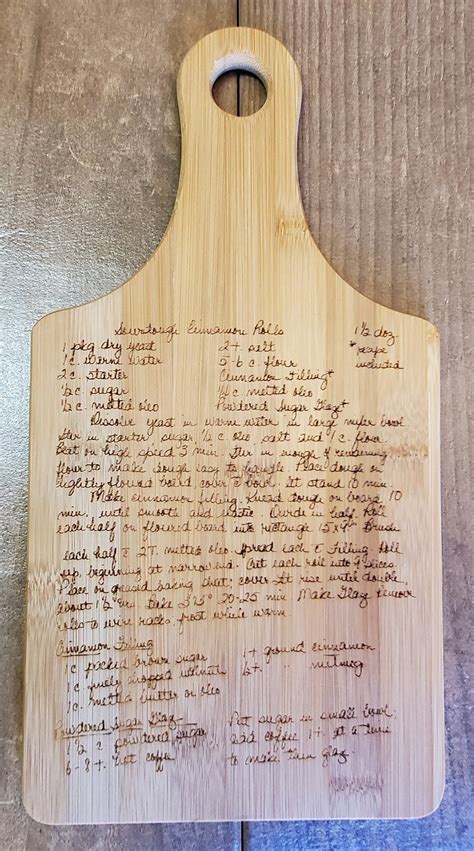 Sourdough Cinnamon Rolls 1 ½ doz.
1 pkg dry yeast 2 t. salt *recipe
1 c. warm water 5-6 c. flour included
2 c. starter Cinnamon Filling*
½ c. sugar ¼ c. melted oleo
½ c. melted oleo Powdered Sugar Glaz*
Dissolve yeast in warm water in large mixer bowl
Stir in starter, sugar, ½ c. oleo, salt and 1 c. flour
Beat on high speed 3 min. Stir in enough of remaining
flour to make dough easy to handle. Place dough on
lightly floured board cover c̄ bowl. Let stand 10 min
Make cinnamon filling. Knead dough on board 10
min. until smooth and elastic. Divide in half. Roll
each half on floured board into rectangle 15x9" Brush
each half c̄ 2T. melted oleo. Spread each c̄ Filling. Roll
up, beginning at narrow end. Cut each roll into 9 slices.
Place on greased baking sheet; cover let rise until double,
about 1 ½ hrs. Bake 375° 20-25 min. Make Glaz. Remove
rolls to wire racks, frost while warm.
Cinnamon Filling
1 c. packed brown sugar 1 t. ground cinnamon
1 c. finely chopped walnuts t. " nutmeg
c. melted butter or oleo
Powdered Sugar Glaz Put sugar in small bowl;
1 ½ c powdered sugar add coffee 1 t. at a time
6-8 t. hot coffee to make thin glaz.